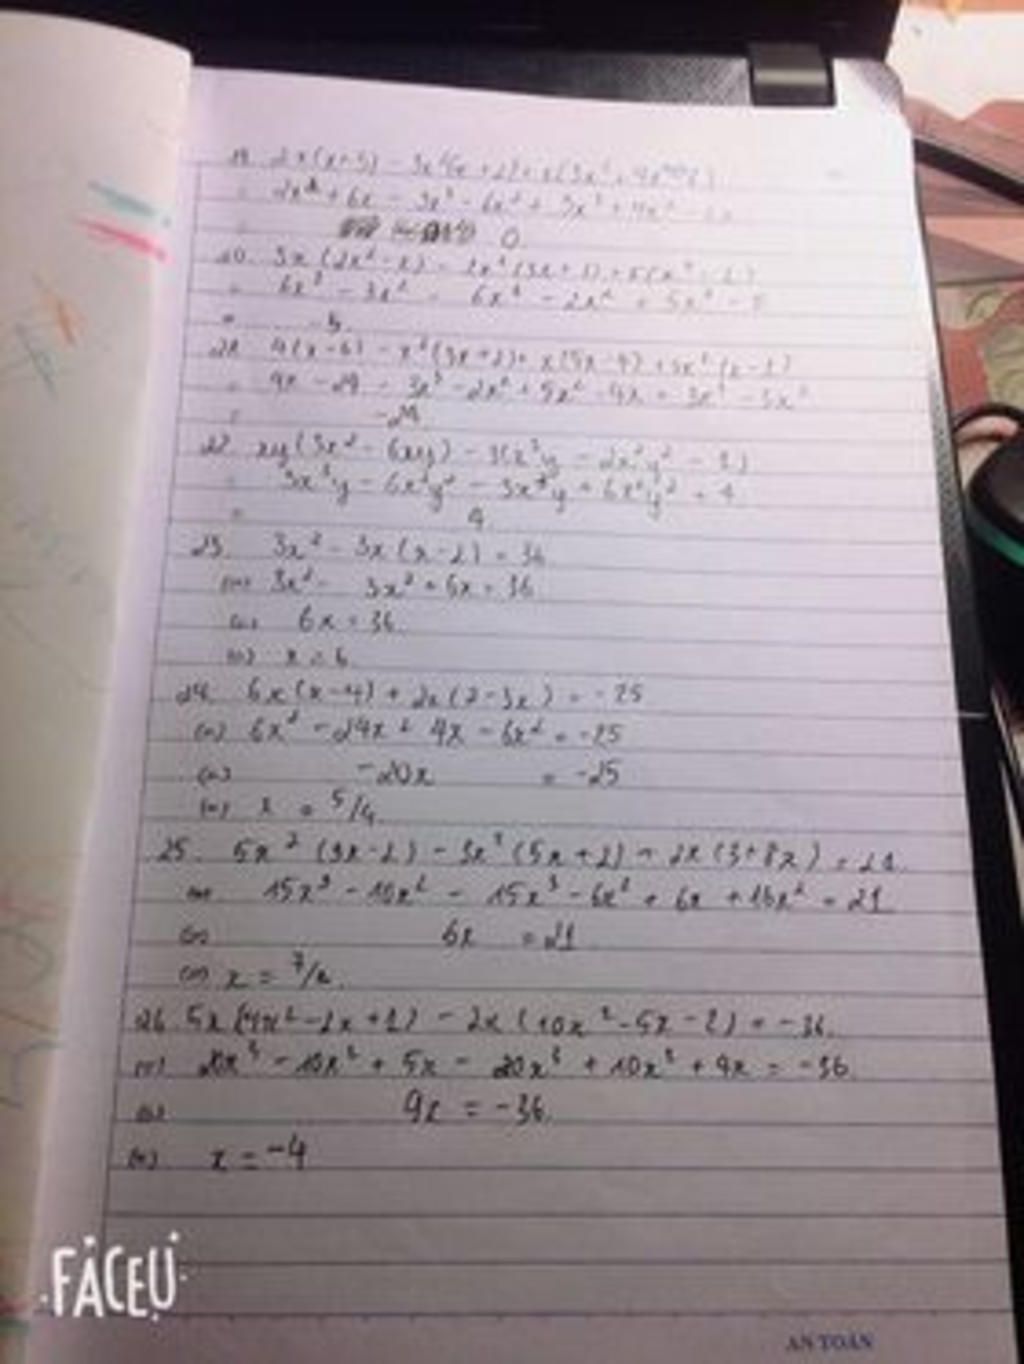 2x(x+3) - 3x²(x+2) + x(3x²+4x
2x² + 6x - 3x³ - 6x² + 3x³ + 4x² - 6x
0
20. 3x(2x²-x) - 2x²(3x+1) + 5(x²-1)
= 6x³ - 3x² - 6x³ - 2x² + 5x² - 5
= -5
21. 4(x-6) - x²(3x+2) + x(5x-4) + 3x²(x-1)
= 4x - 24 - 3x³ - 2x² + 5x² - 4x + 3x³ - 3x²
= -24
22. xy(3x²-6xy) - 3(x³y - 2x²y² - 1)
= 3x³y - 6x²y² - 3x³y + 6x²y² +
=
23. 3x² - 3x(x-2) = 36
(=) 3x² - 3x² + 6x = 36
(=) 6x = 36
(=) x = 6
24. 6x(x-4) + 2x(2-3x) = -25
(=) 6x² - 24x + 4x - 6x² = -25
(=) -20x = -25
(=) x = 5/4
25. 5x²(3x-2) - 3x²(5x+2) + 2x(3+8x) = 21
(=) 15x³ - 10x² - 15x³ - 6x² + 6x + 16x² = 21
(=) 6x = 21
(=) x = 7/2
26. 5x(4x²-2x+1) - 2x(10x²-5x-2) = -36
(=) 20x³ - 10x² + 5x - 20x³ + 10x² + 4x = -36
(=) 9x = -36
(=) x = -4
FACEU
AN TOÀN